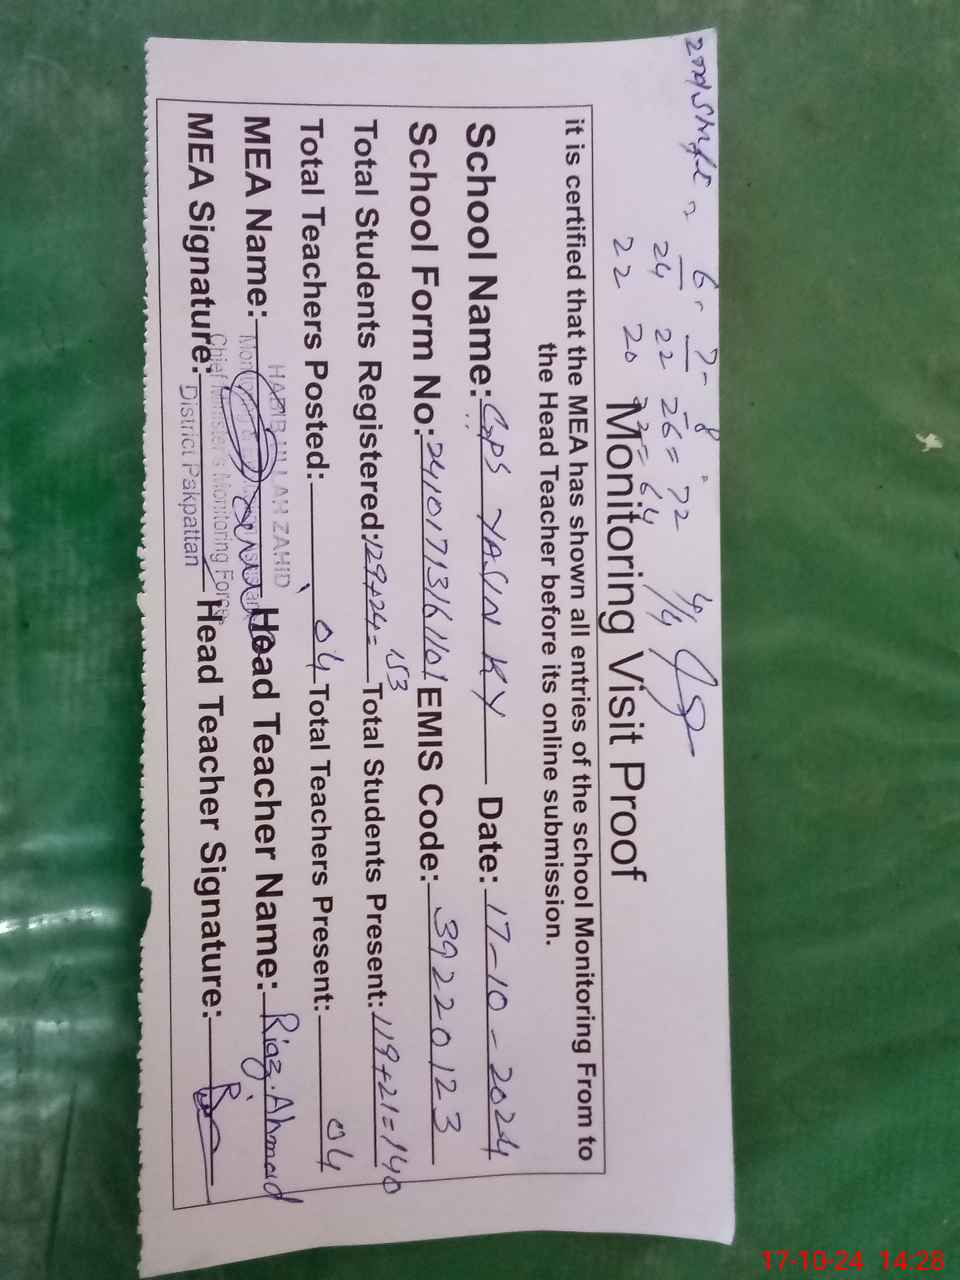 2nd Shift =
6 - 7 - 8
24 22 26 = 72 4/4
22 20 22 = 64
Monitoring Visit Proof
it is certified that the MEA has shown all entries of the school Monitoring From to
the Head Teacher before its online submission.
School Name: GPS YASIN KY Date: 17-10-2024
School Form No: 24101713161101 EMIS Code: 39220123
Total Students Registered: 129+24= 153 Total Students Present: 119+21=140
Total Teachers Posted: 04 Total Teachers Present: 04
MEA Name: Head Teacher Name: Riaz Ahmad
MEA Signature: Head Teacher Signature:
HABIB ULLAH ZAHID
Monitoring &
Chief Minister's Monitoring Force
District Pakpattan
17-10-24 14:28